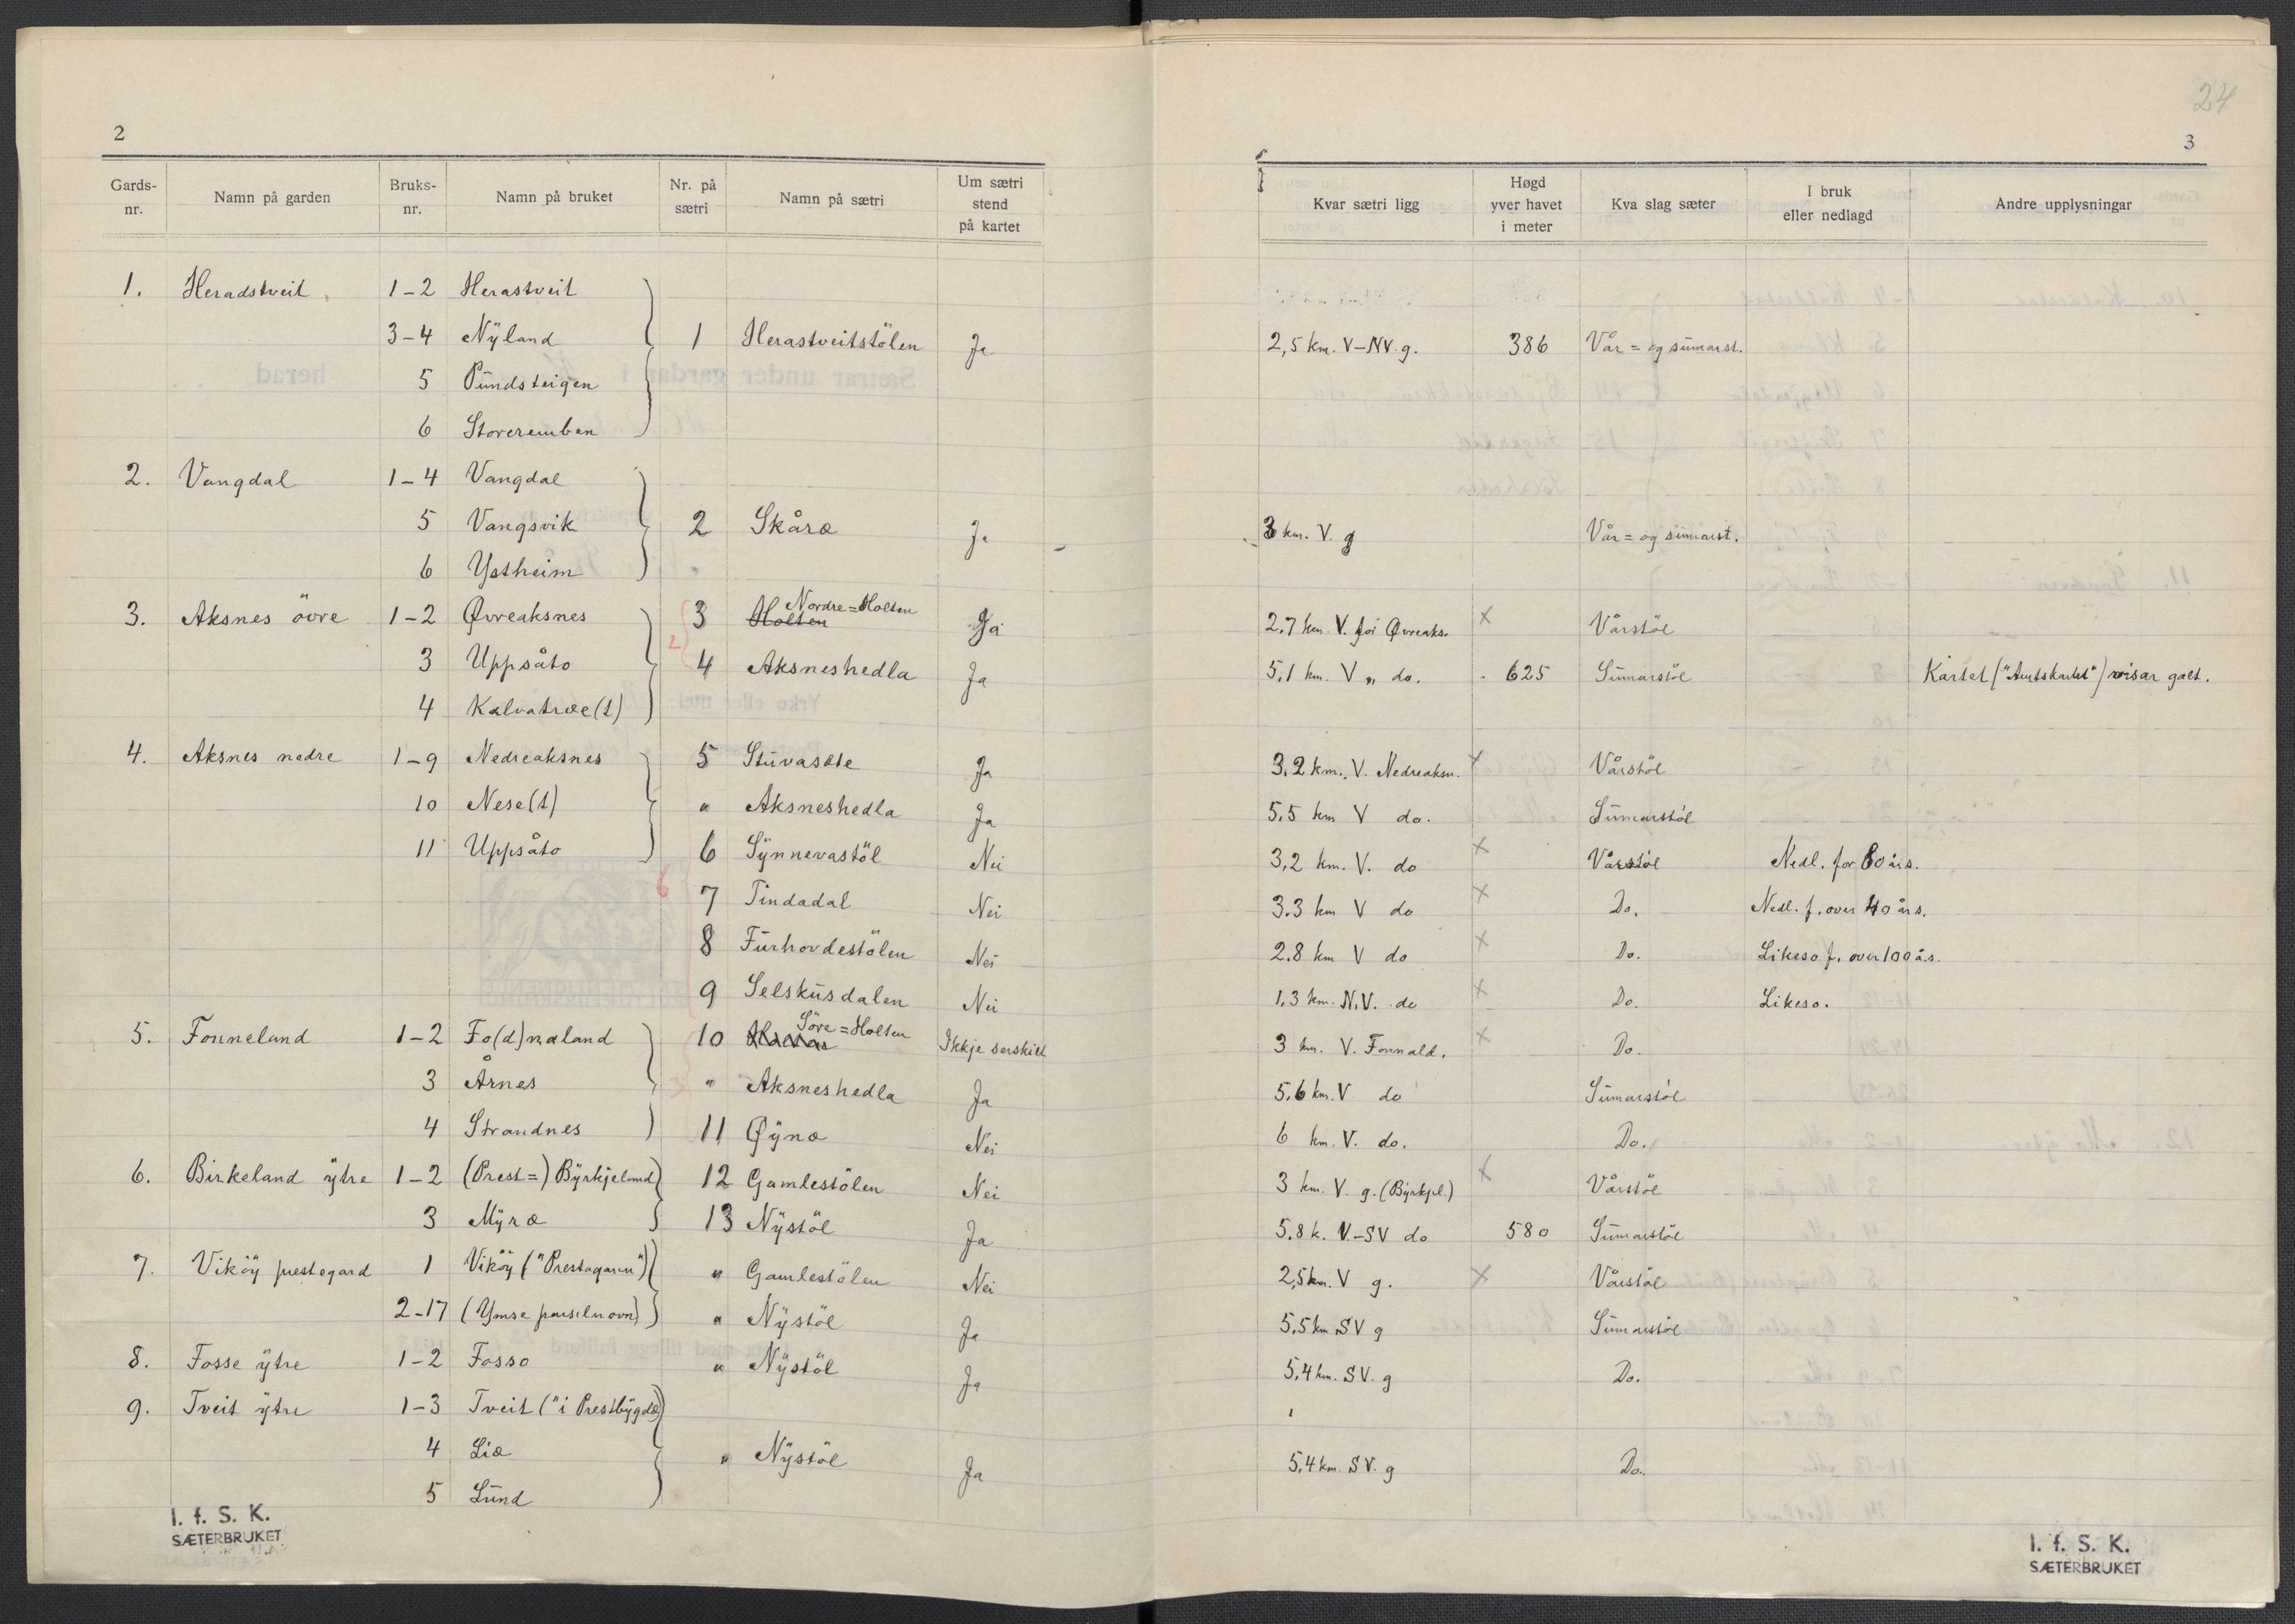 2
Gards-nr. Namn på garden Bruks-nr. Namn på bruket Nr. på sætri Namn på sætri Um sætri stend på kartet
1. Heradstveit 1-2 Herastveit
3-4 Nÿland 1 Herastveitstölen Ja
5 Pŭndsteigen
6 Storeremben
2. Vangdal 1-4 Vangdal
5 Vangsvik 2 Skåræ Ja
6 Ystheim
3. Aksnes övre 1-2 Øvreaksnes 3 Holten Nordre=Holten Ja
3 Uppsåto 4 Aksneshedla Ja
4 Kalvatræe(t)
4. Aksnes nedre 1-9 Nedreaksnes 5 Stŭvasæte Ja
10 Nese(t) " Aksneshedla Ja
11 Uppsåto 6 Sÿnnevastöl Nei
6 7 Tindadal Nei
8 Fŭrhovdestölen Nei
9 Selskŭsdalen Nei
5. Fonneland 1-2 Fo(d)naland 10 Söre=Holten Ikkje serskilt
3 Årnes " Aksneshedla Ja
4 Strandnes 11 Øÿnæ Nei
6. Birkeland ÿtre 1-2 (Prest=) Bÿrkjeland 12 Gamlestölen Nei
3 Mÿræ 13 Nÿstöl Ja
7. Viköy prestegard 1 Viköy ("Prestagarn") " Gamlestölen Nei
2-17 (Ymse parselnovn) " Nÿstöl Ja
8. Fosse ÿtre 1-2 Fosso " Nÿstöl Ja
9. Tveit ÿtre 1-3 Tveit ("i Prestbÿgdæ)
4 Liæ " Nÿstöl Ja
5 Lŭnd
I. f. S. K.
SÆTERBRUKET
24
3
Kvar sætri ligg Høgd yver havet i meter Kva slag sæter I bruk eller nedlagd Andre upplysningar
2,5 km. V-NV. g. 386 Vår= og sŭmarst.
3 km. V. g Vår= og sŭmarst.
2,7 km. V. for Øvreaks. x Vårstöl
5,1 km. V " do. 625 Sŭmarstöl Kartet ("Amtskartet") visar galt.
3,2 km. V. Nedreaksn. x Vårstöl
5,5 km V do. Sŭmarstöl
3,2 km. V. do x Vårstöl Nedl. for 80 år s.
3.3 km V do x Do. Nedl. f. over 40 år s.
2.8 km V do x Do. Likeso f. over 100 å.s.
1,3 km. N.V. do x Do. Likeso.
3 km. V. Fonnald. x Do.
5,6 km. V do Sŭmarstöl
6 km. V. do. Do.
3 km. V. g. (Bÿrkjel.) x Vårstöl
5.8 k. V-SV do 580 Sŭmarstöl
2,5 km. V g. x Vårstöl
5,5 km SV g Sŭmarstöl
5,4 km. SV. g Do.
5,4 km. SV. g Do.
I. f. S. K.
SÆTERBRUKET